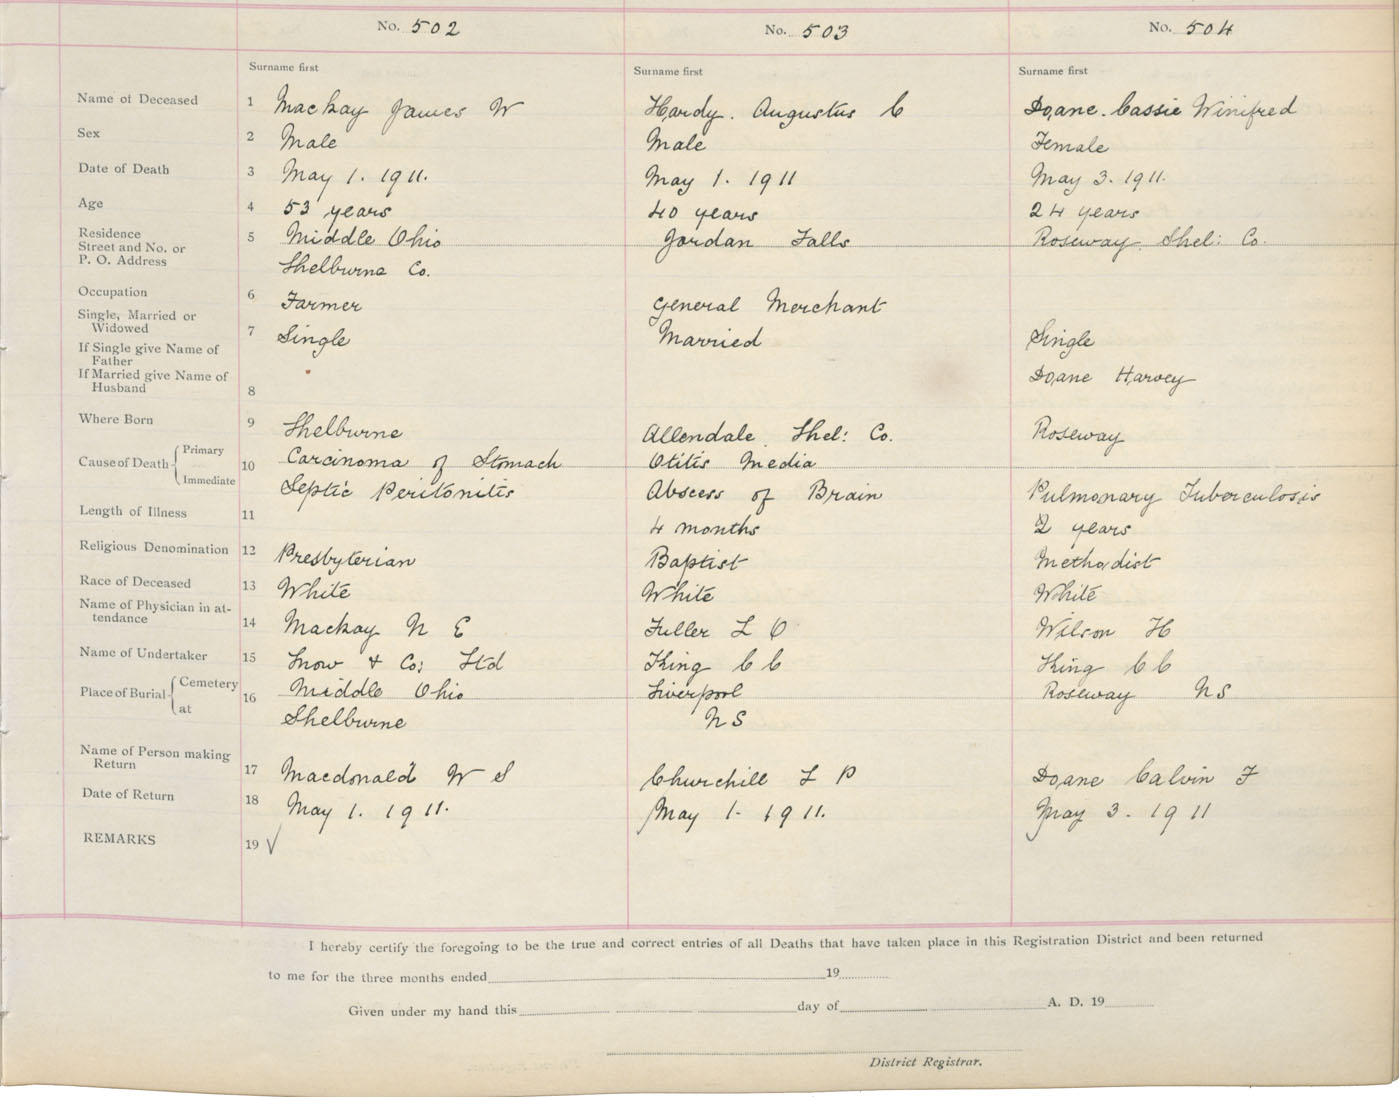 No. 502 No. 503 No. 504
Surname first Surname first Surname first
Name of Deceased 1 Mackay James W Hardy. Augustus C Doane. Cassie Winifred
Sex 2 Male Male Female
Date of Death 3 May 1. 1911. May 1. 1911 May 3. 1911.
Age 4 53 years 40 years 24 years
Residence
Street and No. or 5 Middle Ohio Jordan Falls Roseway Shel: Co.
P. O. Address Shelburne Co.
Occupation 6 Farmer General Merchant
Single, Married or
Widowed 7 Single Married Single
If Single give Name of
Father
If Married give Name of Doane Harvey
Husband 8
Where Born 9 Shelburne Allendale Shel: Co. Roseway
Cause of Death Primary 10 Carcinoma of Stomach Otitis Media
Immediate Septic Peritonitis Abscess of Brain Pulmonary Tuberculosis
Length of Illness 11 4 months 2 years
Religious Denomination 12 Presbyterian Baptist Methodist
Race of Deceased 13 White White White
Name of Physician in at-
tendance 14 Mackay N E Fuller L O Wilson H
Name of Undertaker 15 Snow & Co: Ltd King C C King C C
Place of Burial Cemetery 16 Middle Ohio Liverpool Roseway NS
at Shelburne NS
Name of Person making
Return 17 Macdonald W S Churchill L P Doane Calvin F
Date of Return 18 May 1. 1911. May 1- 1911. May 3. 1911
REMARKS 19 √
I hereby certify the foregoing to be the true and correct entries of all Deaths that have taken place in this Registration District and been returned
to me for the three months ended 19
Given under my hand this day of A. D. 19
District Registrar.